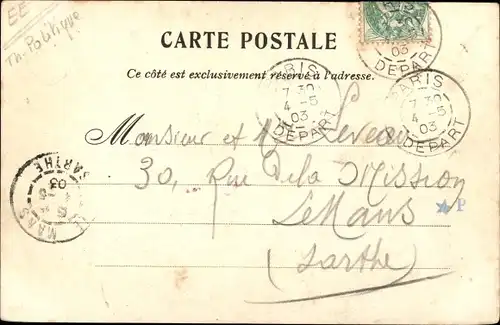 EE
Th. Politique
CARTE POSTALE
Ce côté est exclusivement réservé à l'adresse.
PARIS
7 30
4 - 5
03
DEPART
PARIS
7 30
4 - 5
03
DEPART
03
DEPART
Monsieur et M Leveau
30, Rue de la Mission
Le Mans
(Sarthe)
LE MANS
SARTHE
03
P